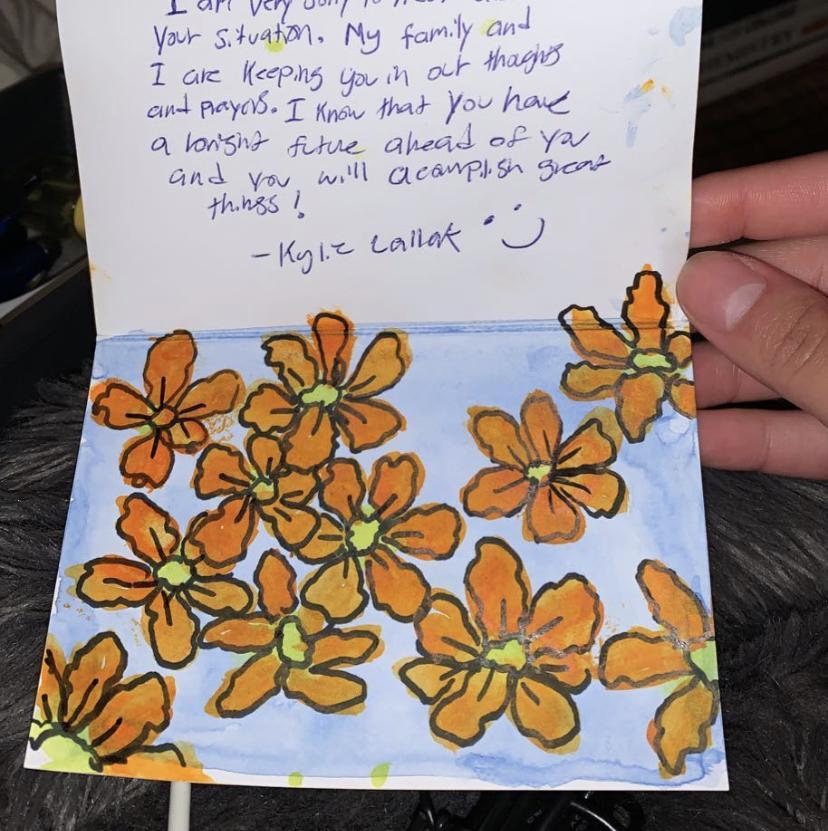 I am very sorry to hear
your situation. My family and
I are keeping you in our thoaghts
and prayors. I know that you have
a bright future ahead of you
and you will acomplish great
things!
-Kylie Lallak